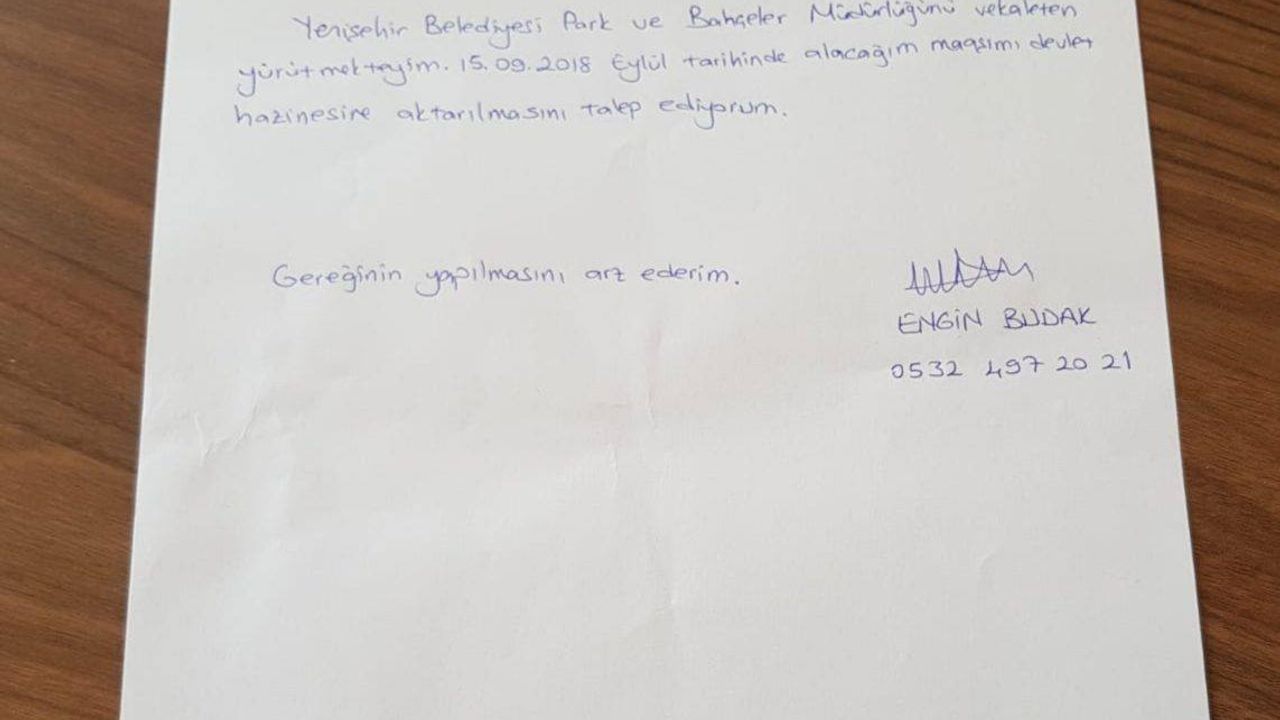 Yenişehir Belediyesi Park ve Bahçeler Müdürlüğünü vekaleten
yürütmekteyim. 15.09.2018 Eylül tarihinde alacağım maaşımı devlet
hazinesine aktarılmasını talep ediyorum.
Gereğinin yapılmasını arz ederim.
ENGİN BUDAK
0532 497 20 21